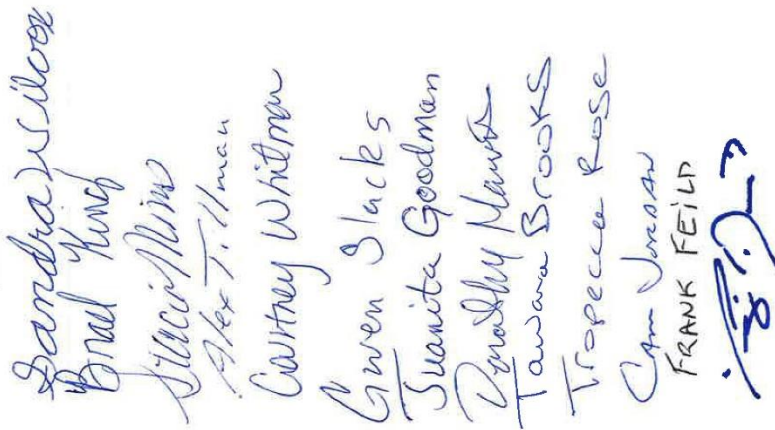 Sandra Wilcox
Brad King
Stacie Mims
Alex Tillman
Courtney Whitman
Gwen Slacks
Juanita Goodman
Dorothy
Tawana Brooks
Tropecca Rose
Cam Jordan
FRANK FEILD